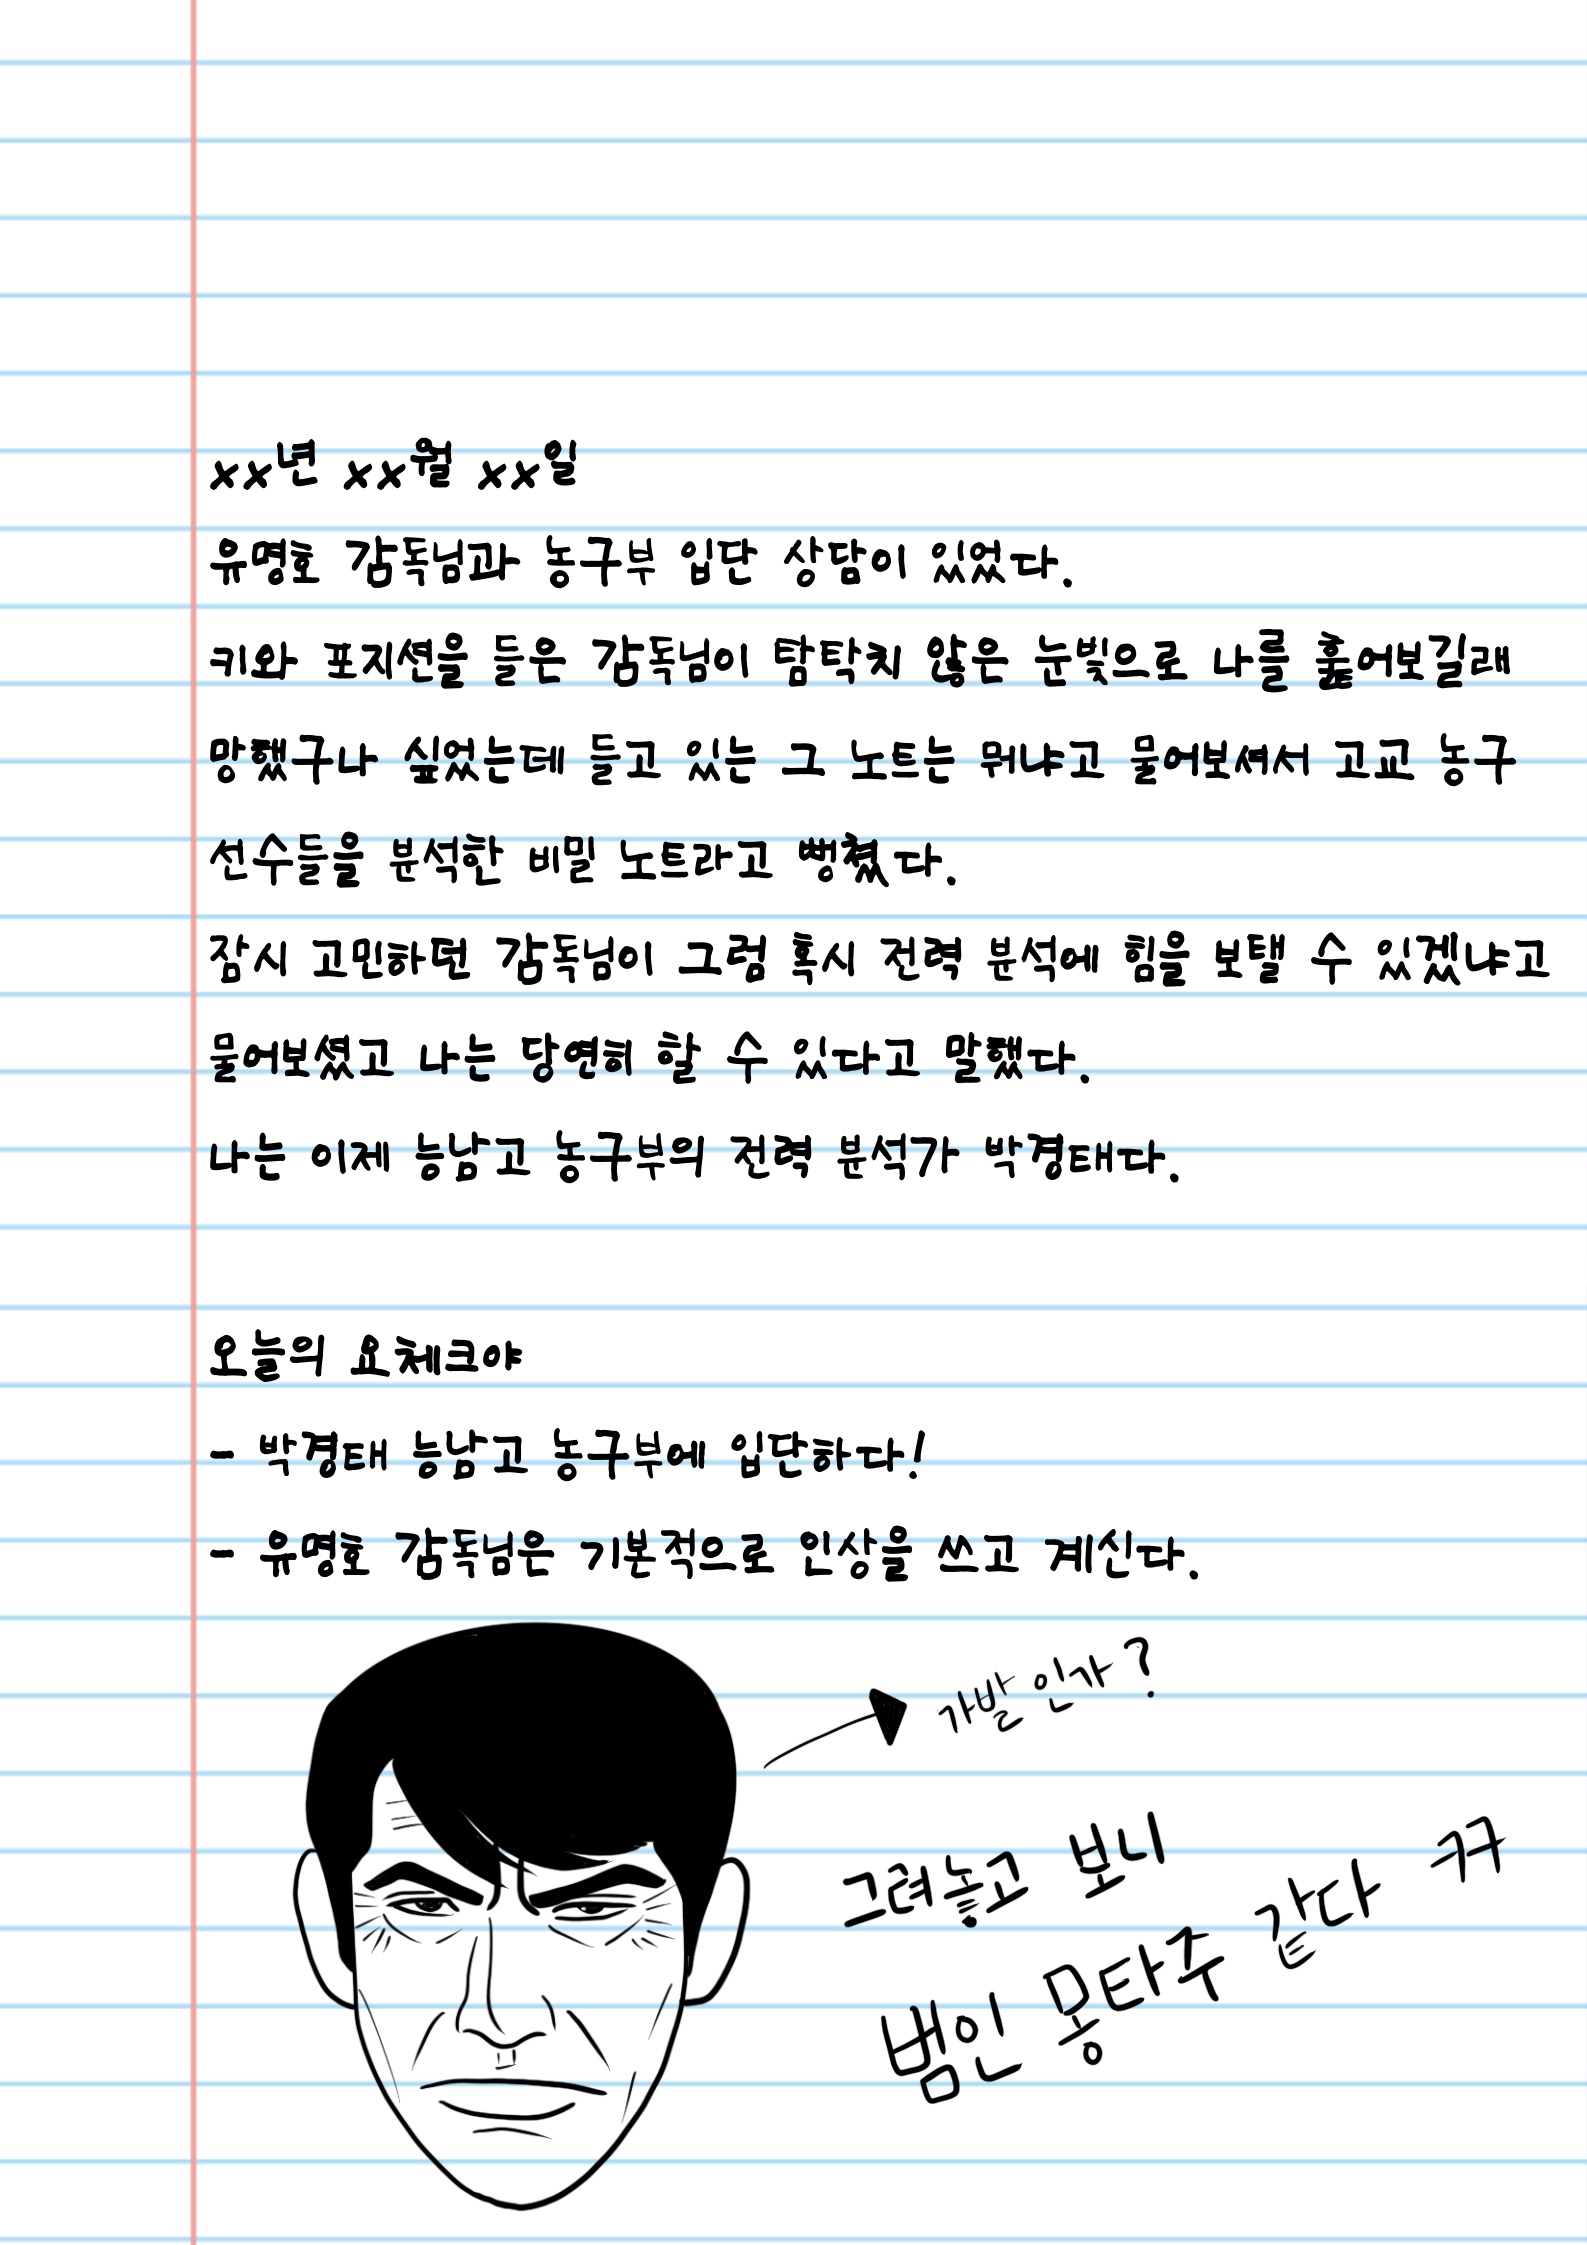 xx년 xx월 xx일
유명호 감독님과 농구부 입단 상담이 있었다.
키와 포지션을 들은 감독님이 탐탁치 않은 눈빛으로 나를 훑어보길래
망했구나 싶었는데 들고 있는 그 노트는 뭐냐고 물어보셔서 고교 농구
선수들을 분석한 비밀 노트라고 뻥쳤다.
잠시 고민하던 감독님이 그럼 혹시 전력 분석에 힘을 보탤 수 있겠냐고
물어보셨고 나는 당연히 할 수 있다고 말했다.
나는 이제 능남고 농구부의 전력 분석가 박경태다.
오늘의 요체크야
- 박경태 능남고 농구부에 입단하다!
- 유명호 감독님은 기본적으로 인상을 쓰고 계신다.
가발인가?
그려놓고 보니
범인 몽타주 같다 ㅋㅋ